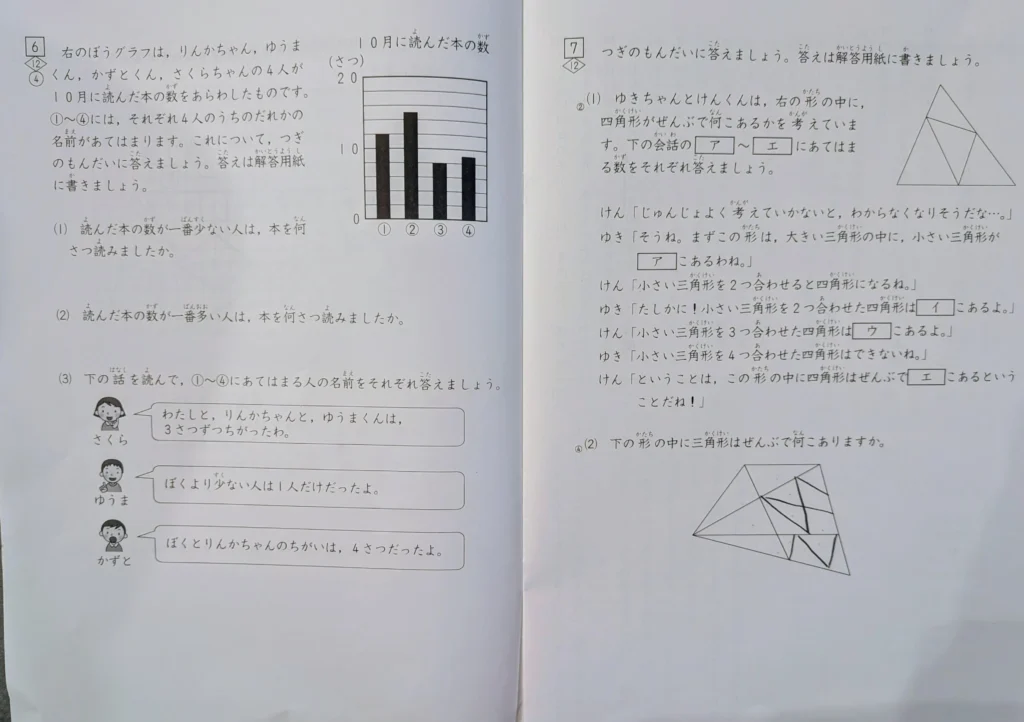 6
12
④
右のぼうグラフは，りんかちゃん，ゆうま
くん，かずとくん，さくらちゃんの4人が
10月に読んだ本の数をあらわしたものです。
①～④には，それぞれ4人のうちのだれかの
名前があてはまります。これについて，つぎ
のもんだいに答えましょう。答えは解答用紙
に書きましょう。
10月に読んだ本の数
(さつ)
20
10
0
① ② ③ ④
(1) 読んだ本の数が一番少ない人は，本を何
さつ読みましたか。
(2) 読んだ本の数が一番多い人は，本を何さつ読みましたか。
(3) 下の話を読んで，①～④にあてはまる人の名前をそれぞれ答えましょう。
わたしと，りんかちゃんと，ゆうまくんは，
3さつずつちがったわ。
さくら
ぼくより少ない人は1人だけだったよ。
ゆうま
ぼくとりんかちゃんのちがいは，4さつだったよ。
かずと
7
12
つぎのもんだいに答えましょう。答えは解答用紙に書きましょう。
②(1) ゆきちゃんとけんくんは，右の形の中に，
四角形がぜんぶで何こあるかを考えていま
す。下の会話の ア ～ エ にあてはま
る数をそれぞれ答えましょう。
けん「じゅんじょよく考えていかないと，わからなくなりそうだな…。」
ゆき「そうね。まずこの形は，大きい三角形の中に，小さい三角形が
ア こあるわね。」
けん「小さい三角形を2つ合わせると四角形になるね。」
ゆき「たしかに！小さい三角形を2つ合わせた四角形は イ こあるよ。」
けん「小さい三角形を3つ合わせた四角形は ウ こあるよ。」
ゆき「小さい三角形を4つ合わせた四角形はできないね。」
けん「ということは，この形の中に四角形はぜんぶで エ こあるという
ことだね！」
④(2) 下の形の中に三角形はぜんぶで何こありますか。